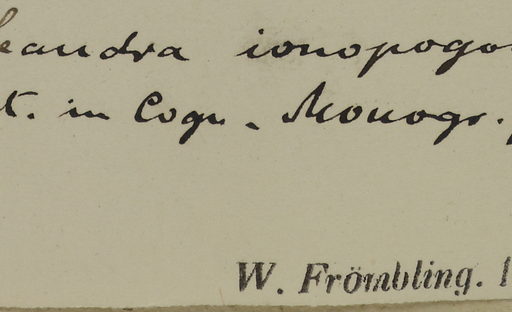 Leandra ionopogon
t. in Cogn. Monogr.
W. Frömbling.